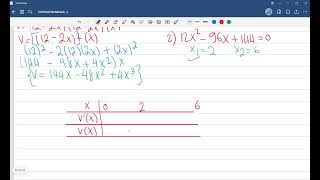 V = [(12-2x)]² (x)
(12)² - 2(12)(2x) + (2x)²
(144 - 48x + 4x²) x
{V = 144x - 48x² + 4x³}
2) 12x² - 96x + 144 = 0
x₁ = 2 x₂ = 6
x 0 2 6
v'(x)
v(x)